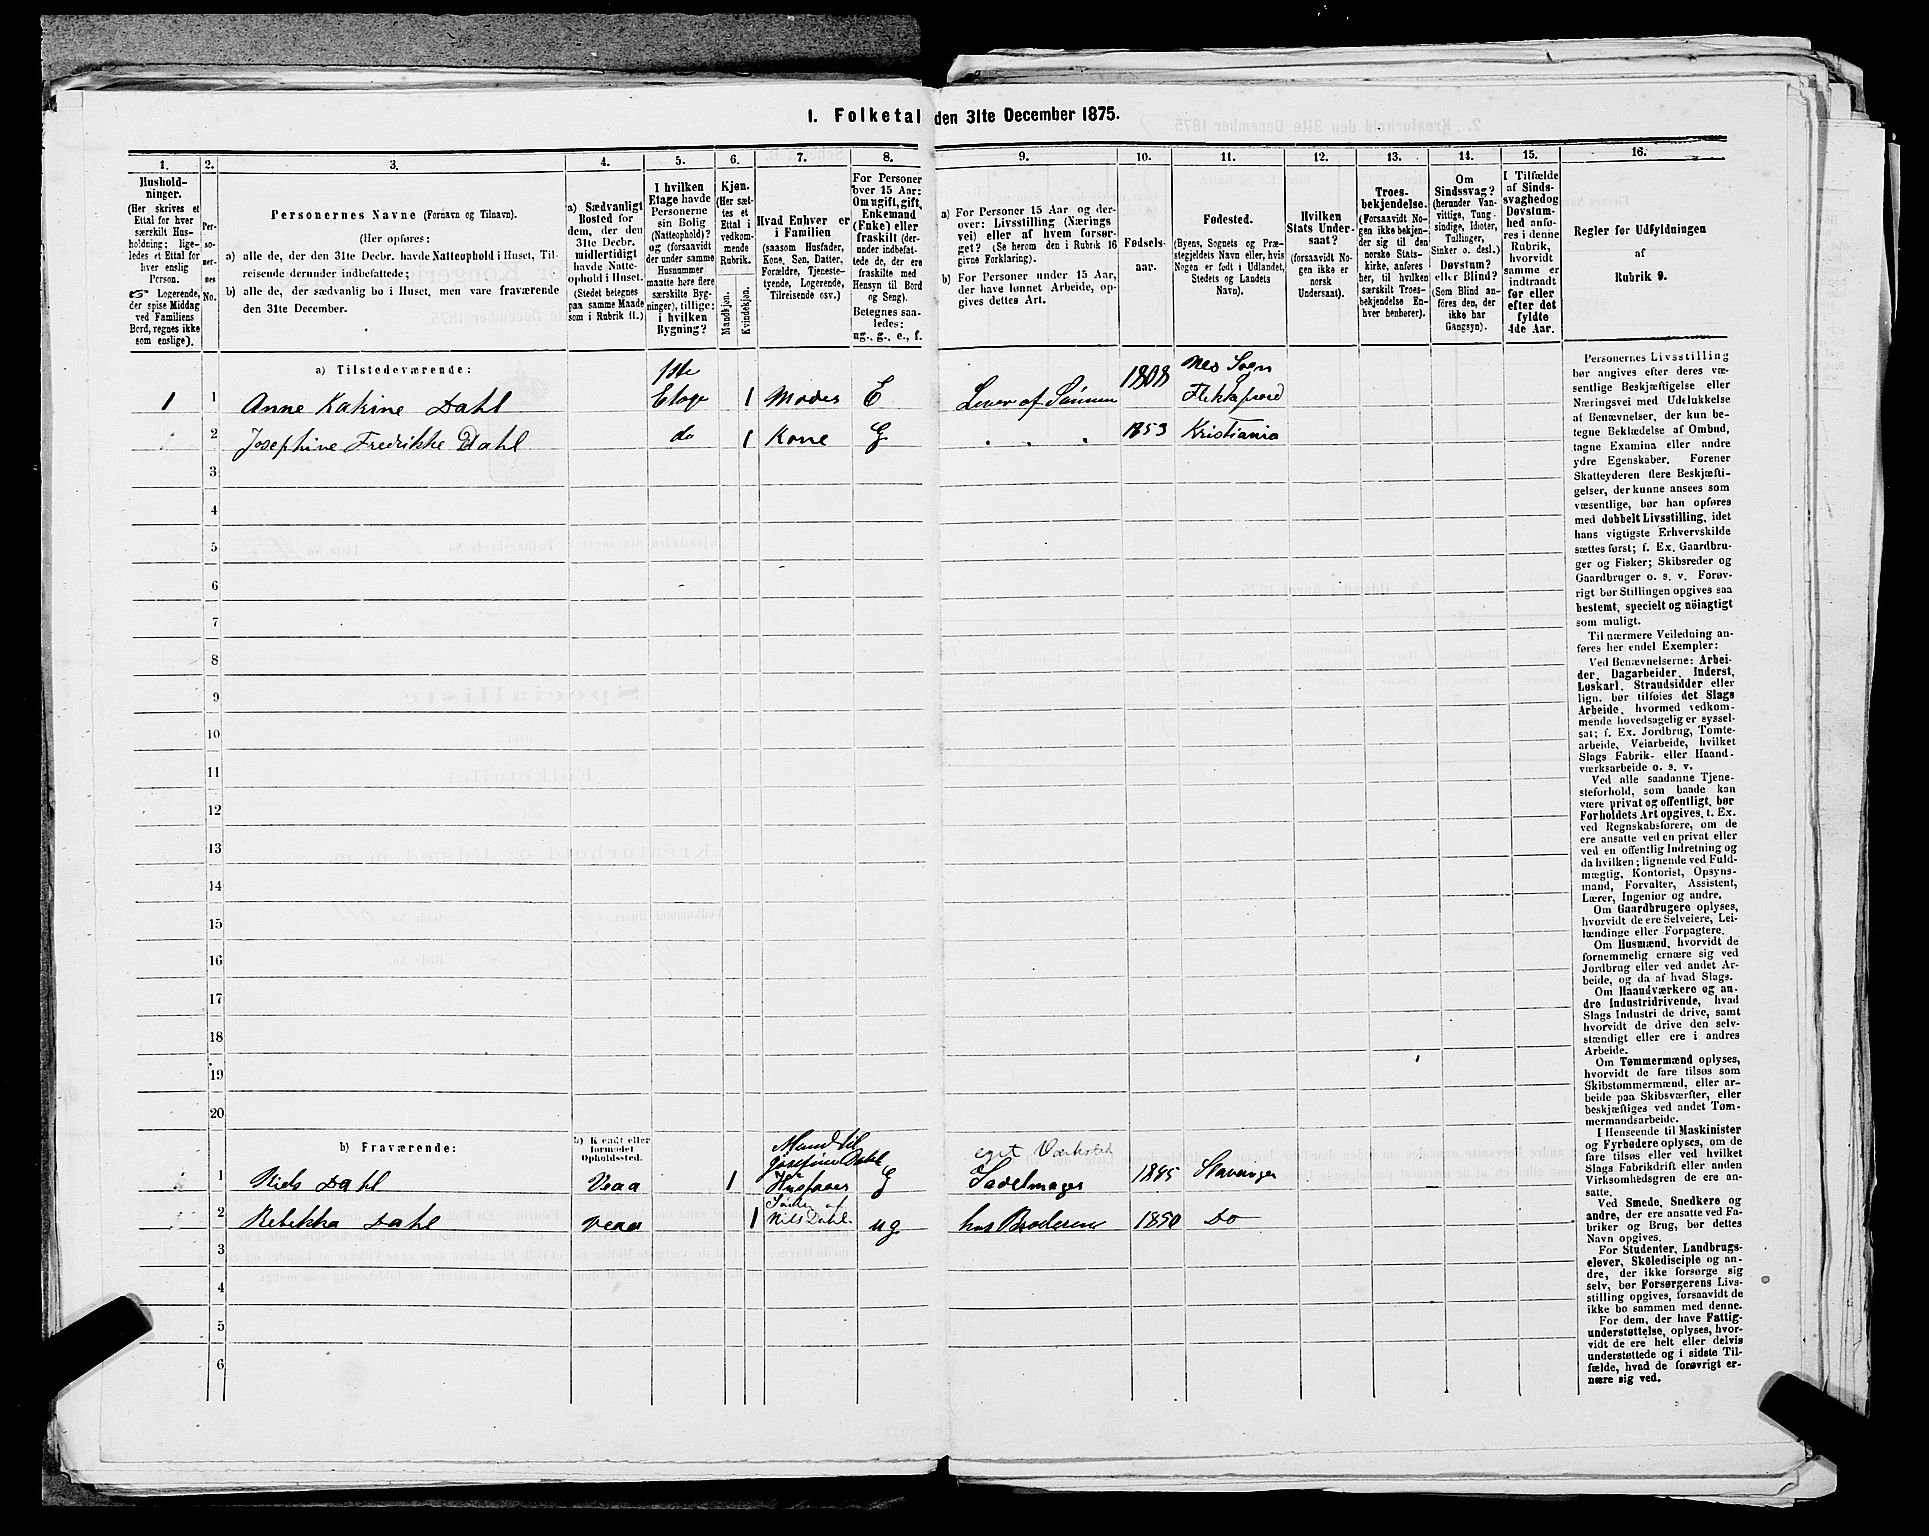 1. Folketal den 31te December 1875.
1.
2.
3.
4.
5.
6.
7.
8.
9.
10.
11.
12.
13.
14.
15.
16.
Hushold-
ninger.
(Her skrives et
Ettal for hver
særskilt Hus-
holdning; lige-
ledes et Ettal for
hver enslig
Person.
Logerende,
der spise Middag
ved Familiens
Bord, regnes ikke
som enslige).
Per-
so-
ner-
nes
No.
Personernes Navne (Fornavn og Tilnavn).
(Her opføres:
a) alle de, der den 31te Decbr. havde Natteophold i Huset, Til-
reisende derunder indbefattede;
b) alle de, der sædvanlig bo i Huset, men vare fraværende
den 31te December.
a) Sædvanligt
Bosted for
dem, der den
31te Decbr.
midlertidigt
havde Natte-
ophold i Huset.
(Stedet betegnes
paa samme Maade
som i Rubrik 11.)
I hvilken
Etage havde
Personerne
sin Bolig
(Natteophold)?
og (forsaavidt
der under samme
Husnummer
maatte høre flere
særskilte Byg-
ninger), tillige:
i hvilken
Bygning?
Kjøn.
(Her sæt-
tes et
Ettal i
vedkom-
mende
Rubrik.
Mandkjøn.
Kvindekjøn.
Hvad Enhver er
i Familien
(saasom Husfader,
Kone, Søn, Datter,
Forældre, Tjeneste-
tyende, Logerende,
Tilreisende osv.)
For Personer
over 15 Aar:
Om ugift, gift,
Enkemand
(Enke) eller
fraskilt (der-
under indbefat-
tede de, der ere
fraskilte med
Hensyn til Bord
og Seng).
Betegnes saa-
ledes:
ug., g., e., f.
a) For Personer 15 Aar og der-
over: Livsstilling (Nærings
vei) eller af hvem forsør-
get? (Se herom den i Rubrik 16
givne Forklaring).
b) For Personer under 15 Aar,
der have lønnet Arbeide, op-
gives dettes Art.
Fødsels-
aar.
Fødested.
(Byens, Sognets og Præ-
stegjeldets Navn eller, hvis
Nogen er født i Udlandet,
Stedets og Landets
Navn).
Hvilken
Stats Under-
saat?
(forsaavidt No-
gen ikke er
norsk
Undersaat).
Troes-
bekjendelse.
(Forsaavidt No-
gen ikke bekjen-
der sig til den
norske Stats-
kirke, anføres
her, til hvilken
særskilt Troes-
bekjendelse En-
hver henhører).
Om
Sindssvag?
(herunder Van-
vittige, Tung-
sindige, Idioter,
Tullinger,
Sinker o. desl.).
Døvstum?
eller Blind?
(Som Blind an-
føres den, der
ikke har
Gangsyn).
I Tilfælde
af Sinds-
svaghed og
Døvstum-
hed anfø-
res i denne
Rubrik,
hvorvidt
samme er
indtraadt
før eller
efter det
fyldte
4de Aar.
Regler for Udfyldningen
af
Rubrik 9.
a) Tilstedeværende:
1 1 Anne Katrine Dahl 1ste Etage 1 Moder E Lever af Sønnen 1808 Nes Sogn Flekkefjord
2 Josephine Fredrikke Dahl do 1 Kone G " " " 1853 Kristiania
3
4
5
6
7
8
9
10
11
12
13
14
15
16
17
18
19
20
b) Fraværende:
b) Kjendt eller
formodet
Opholdssted.
1 Niels Dahl Veaa 1 Mand til Josefine Dahl Husfader G eget Værksted Sadelmager 1845 Stavanger
2 Rebekka Dahl Veaa 1 Søster af Nils Dahl ug hos Broderen 1850 Do
3
4
5
6
Personernes Livsstilling
bør angives efter deres væ-
sentlige Beskjæftigelse eller
Næringsvei med Udelukkelse
af Benævnelser, der kun be-
tegne Beklædelse af Ombud,
tagne Examina eller andre
ydre Egenskaber. Forener
Skatteyderen flere Beskjæfti-
gelser, der kunne ansees som
væsentlige, bør han opføres
med dobbelt Livsstilling, idet
hans vigtigste Erhvervskilde
sættes først; f. Ex. Gaardbru-
ger og Fisker; Skibsreder og
Gaardbruger o. s. v. Forøv-
rigt bør Stillingen opgives saa
bestemt, specielt og nöiagtigt
som muligt.
Til nærmere Veiledning an-
føres her endel Exempler:
Ved Benævnelserne: Arbei-
der, Dagarbeider, Inderst,
Løskarl, Strandsidder eller
lign. bør tilføies det Slags
Arbeide, hvormed vedkom-
mende hovedsagelig er syssel-
sat; f. Ex. Jordbrug, Tomte-
arbeide, Veiarbeide, hvilket
Slags Fabrik- eller Haand-
værksarbeide o. s. v.
Ved alle saadanne Tjene-
steforhold, som baade kan
være privat og offentligt, bør
Forholdets Art opgives, f. Ex.
ved Regnskabsførere, om de
ere ansatte ved en privat eller
ved en offentlig Indretning og
da hvilken; lignende ved Fuld-
mægtig, Kontorist, Opsyns-
mand, Forvalter, Assistent,
Lærer, Ingeniør og andre.
Om Gaardbrugere oplyses,
hvorvidt de ere Selveiere, Lei-
lændinge eller Forpagtere.
Om Husmænd, hvorvidt de
fornemmelig ernære sig ved
Jordbrug eller ved andet Ar-
beide, og da af hvad Slags.
Om Haandværkere og an-
dre Industridrivende, hvad
Slags Industri de drive, samt
hvorvidt de drive den selv-
stændigt eller ere i andres
Arbeide.
Om Tømmermænd oplyses,
hvorvidt de fare tilsøs som
Skibstømmermænd, eller ar-
beide paa Skibsværfter, eller
beskjæftiges ved andet Tøm-
mermandsarbeide.
I Henseende til Maskinister
og Fyrbødere oplyses, om de
fare tilsøs eller ved hvilket
Slags Fabrikdrift eller anden
Virksomhedsgren de ere an-
satte.
Ved Smede, Snedkere og
andre, der ere ansatte ved Fa-
briker og Brug, bør dettes
Navn opgives.
For Studenter, Landbrugs-
elever, Skoledisciple og an-
dre, der ikke forsørge sig
selv, bør Forsørgerens Livs-
stilling opgives, forsaavidt de
ikke bo sammen med denne.
For dem, der have Fattig-
understøttelse, oplyses, hvor-
vidt de ere helt eller delvis
understøttede og i sidste Til-
fælde, hvad de forøvrigt er-
nære sig ved.